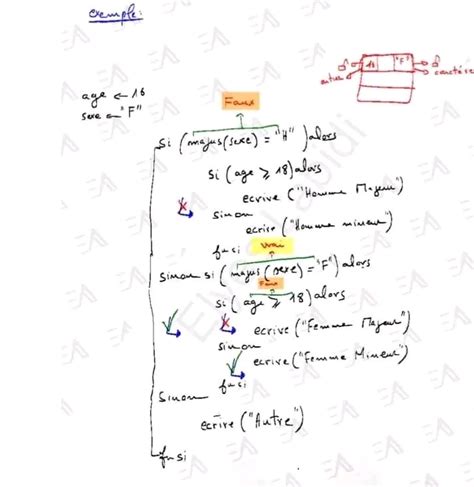 exemple:
age ← 16
sexe ← "F"
16 "F"
entier
caractère
Faux
Si (majus(sexe) = "H") alors
si (age ≥ 18) alors
ecrire ("Homme Majeur")
sinon
ecrire ("Homme mineur")
fin si
Vrai
Sinon si (majus(sexe) = "F") alors
Faux
si (age ≥ 18) alors
ecrire ("Femme Majeur")
sinon
ecrire ("Femme Mineur")
fin si
Sinon
ecrire ("Autre")
fin si